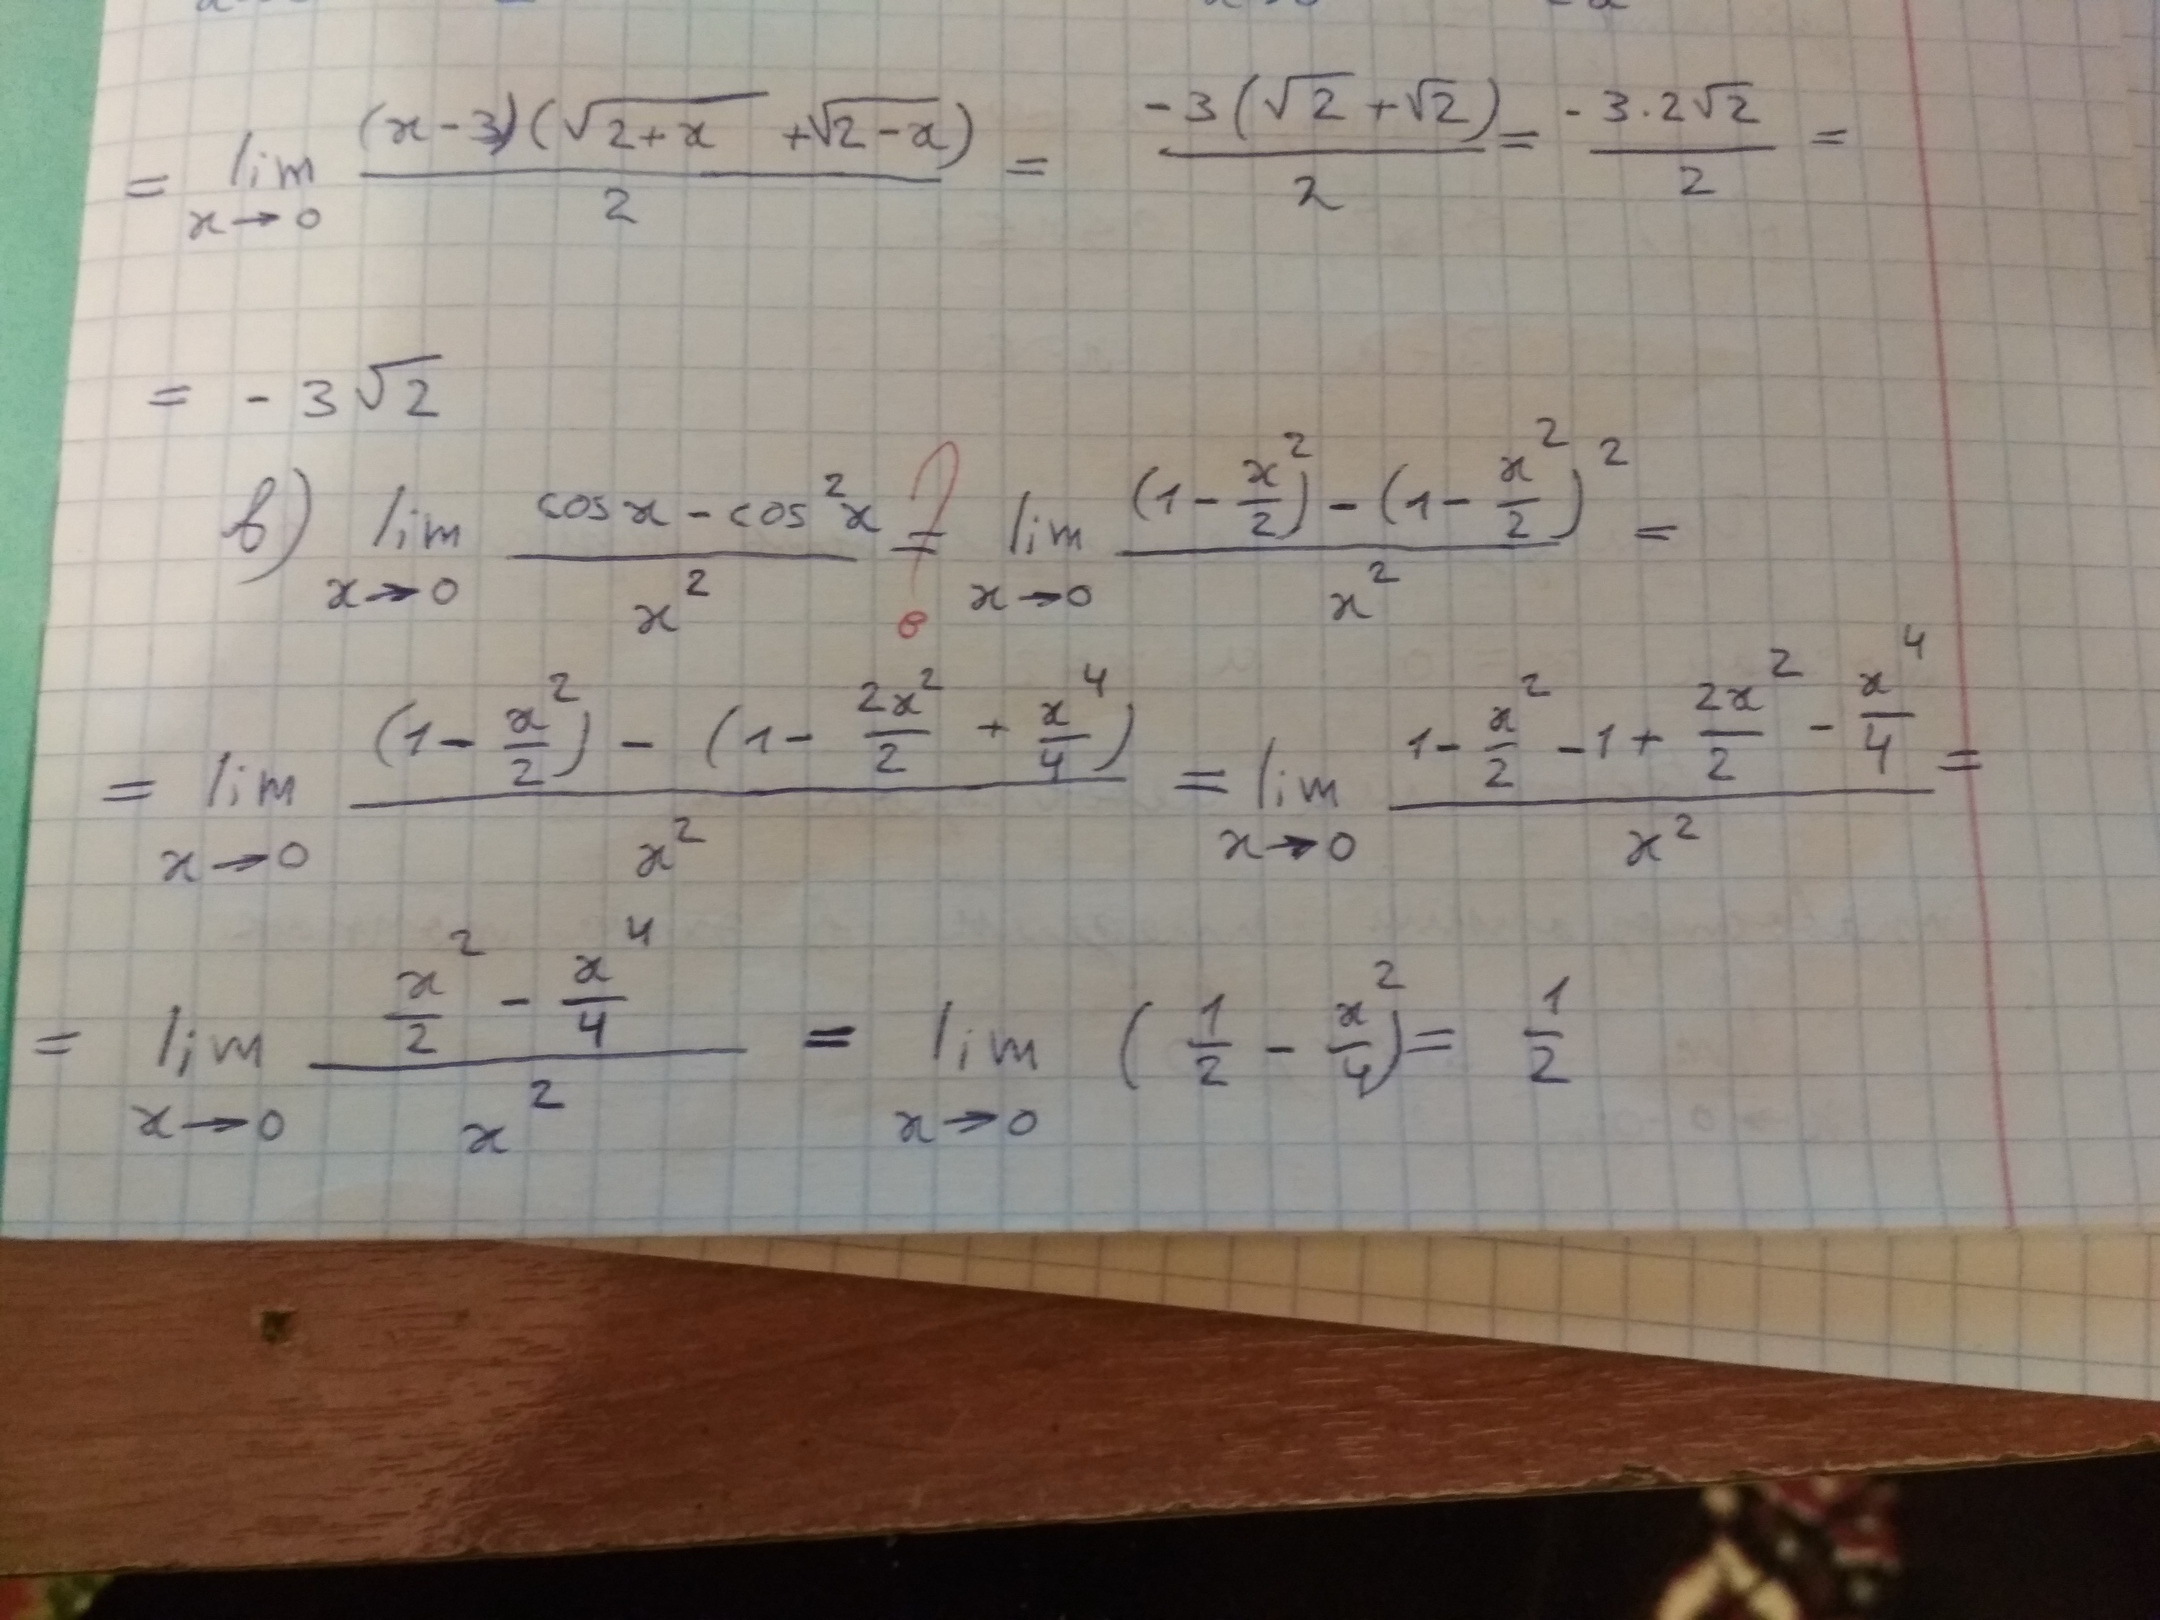 = lim x→0 (x-3)(√(2+x) + √(2-x)) / 2 = -3(√2 + √2) / 2 = -3·2√2 / 2 =
= -3√2
в) lim x→0 (cos x - cos²x) / x² =? lim x→0 ((1 - x²/2) - (1 - x²/2)²) / x² =
= lim x→0 ((1 - x²/2) - (1 - 2x²/2 + x⁴/4)) / x² = lim x→0 (1 - x²/2 - 1 + 2x²/2 - x⁴/4) / x² =
= lim x→0 (x²/2 - x⁴/4) / x² = lim x→0 (1/2 - x²/4) = 1/2